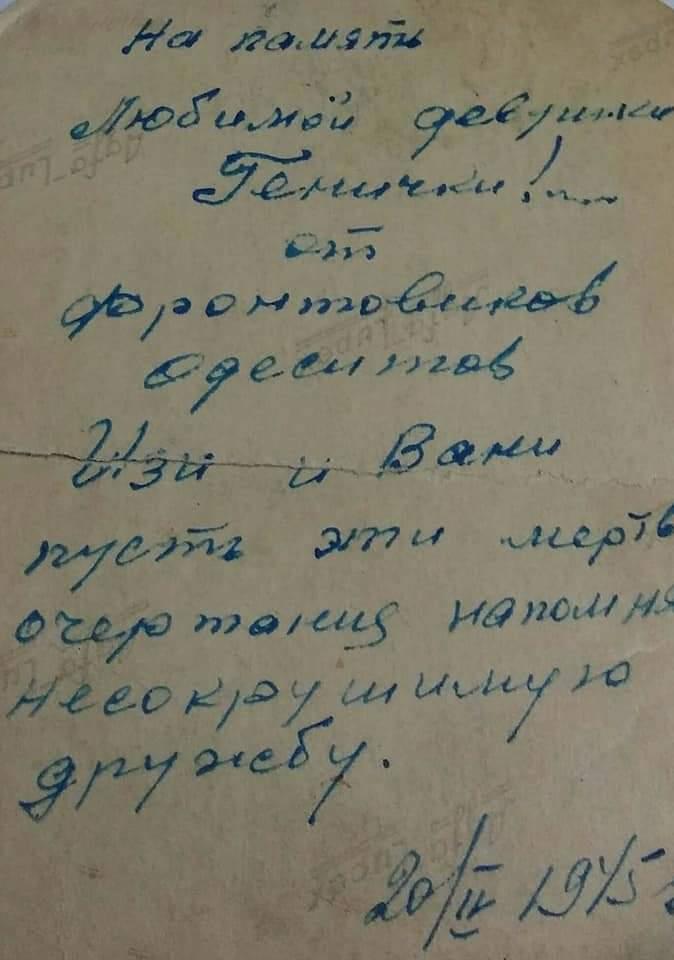 На память
Любимой девушки
Генички!...
от
фронтовиков
одеситов
Изи и Вани
пусть эти мертв
очертания напомня
несокрушимую
дружбу.
20/II 1945г